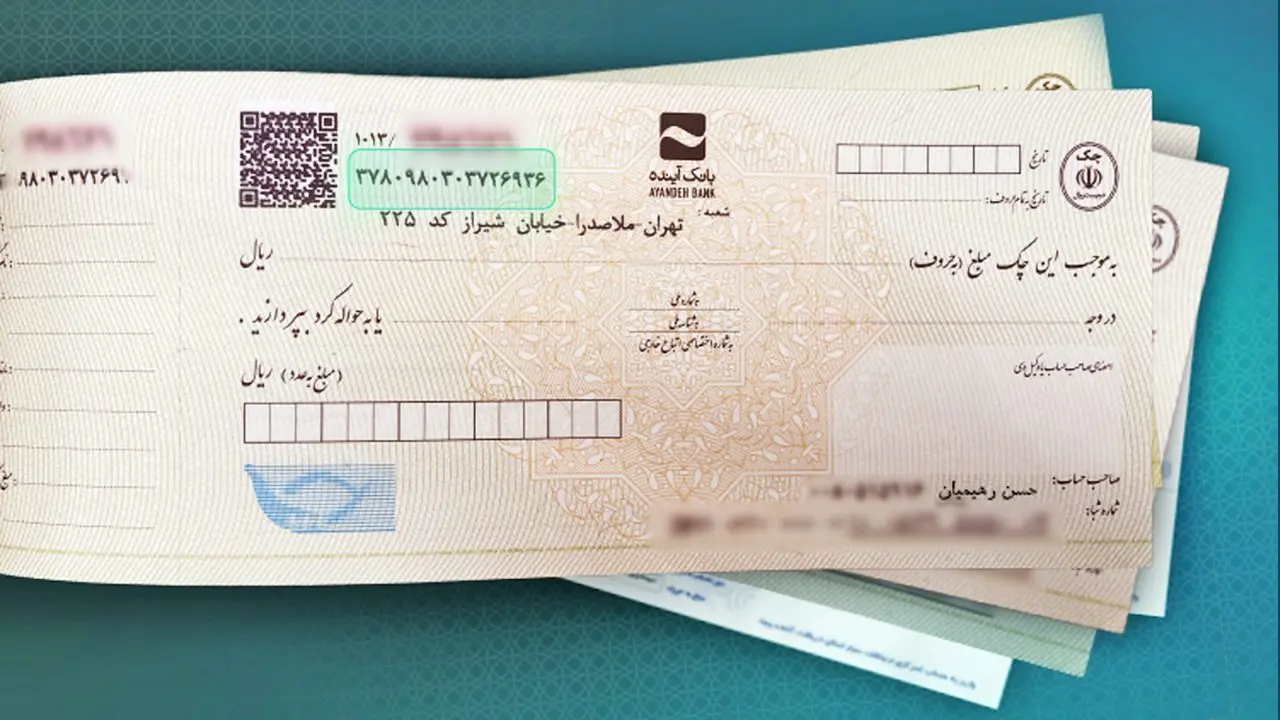 ۱۰۱۳/
۳۷۸۰۹۸۰۳۰۳۷۲۶۹۳۶
۹۸۰۳۰۳۷۲۶۹۰
بانک آینده
AYANDEH BANK
شعبه:
تهران-ملاصدرا-خیابان شیراز کد ۲۲۵
چک
تاریخ
تاریخ به تمام حروف:
به موجب این چک مبلغ (به حروف)
ریال
در وجه
به شماره ملی
به شناسه ملی
به شماره اختصاصی اتباع خارجی
یا به حواله کرد بپردازند.
امضای صاحب حساب یا وکیل وی
(مبلغ به عدد) ریال
صاحب حساب:
حسن رهیمیان
شماره شبا: